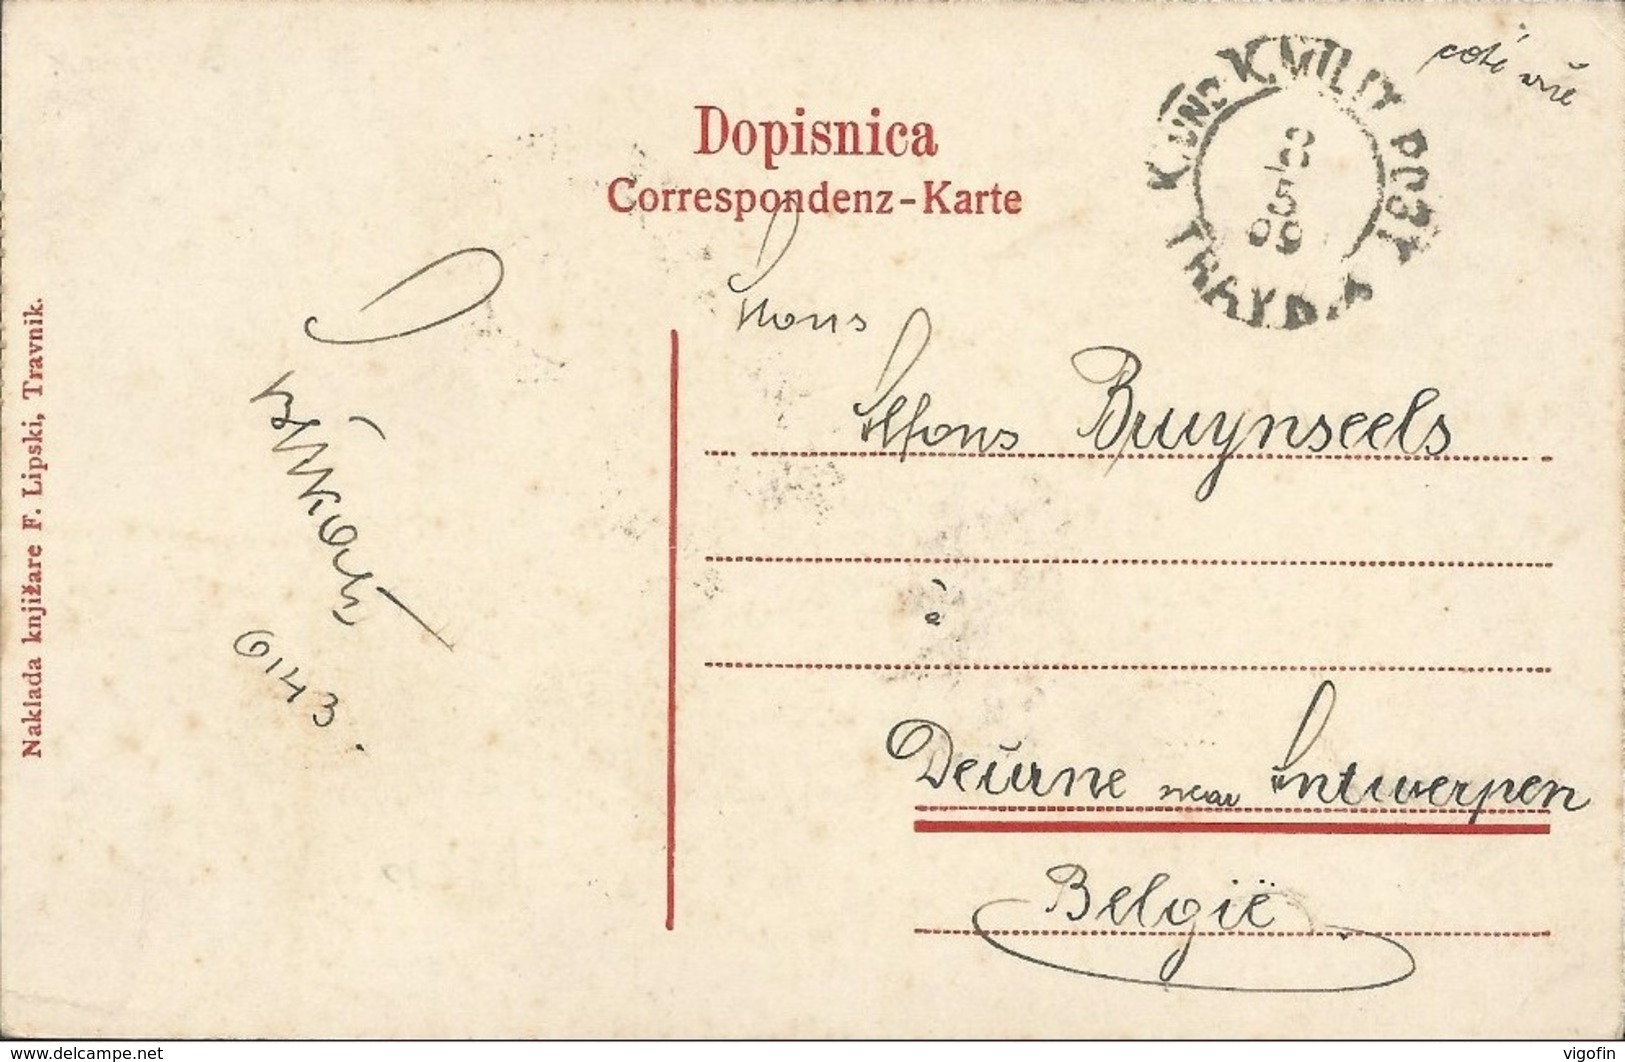 coté vue
K. UND K. MILIT. POST
TRAVNIK
8
5
09
Dopisnica
Correspondenz-Karte
Mons
Alfons Bruynseels
à
Deŭrne near Antwerpen
België
6143.
Naklada knjižare F. Lipski, Travnik.
www.delcampe.net
vigofin